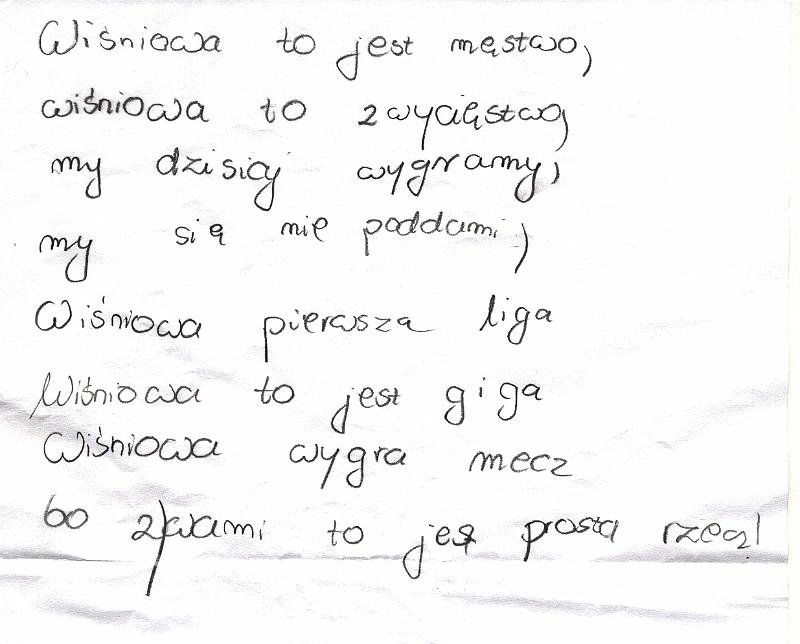 Wiśniowa to jest męstwo,
wiśniowa to zwycięstwo,
my dzisiaj wygramy,
my się nie poddami,
Wiśniowa pierwsza liga
Wiśniowa to jest giga
Wiśniowa wygra mecz
bo z wami to jest prosta rzecz!